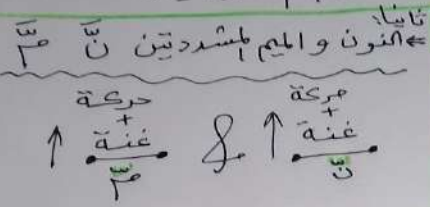 ثانيا:
النون و الميم المشددتين نّ مّ
حركة حركة
+ +
غنة & غنة
نّ مّ